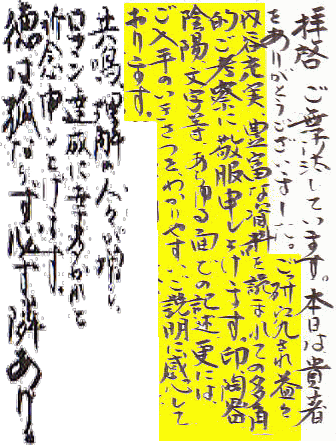 拝啓 ご無沙汰しています。本日は貴著
をありがとうございました。ご研究され益々
内容充実 豊富な資料を読まれての多角
的ご考察に敬服申し上げます。印陶器
陰陽文字等あらゆる面での記述 更には
ご入手のいきさつをわかりやすいご説明に感心して
おります。
共鳴 理解の人々が増し
ロマン達成に
祈念申し上げます。
徳は孤ならず必ず隣あり